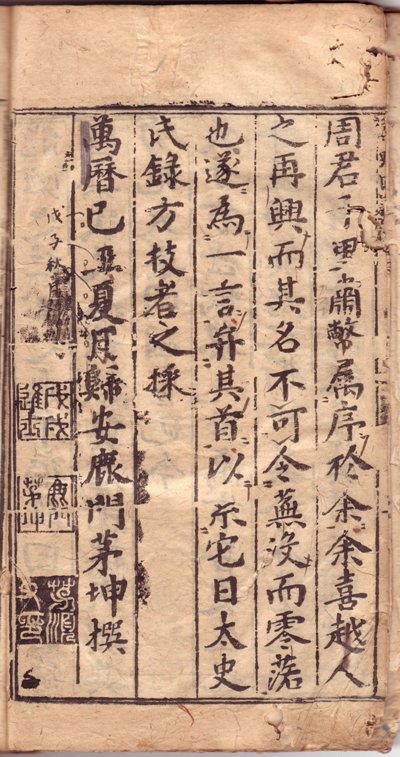 周君千里肅幣属序於余余喜越人
之再興而其名不可令蕪没而零落
也遂為一言弁其首以示它日太史
氏録方技者之採
萬曆己丑夏月歸安鹿門茅坤撰
戊子秋
戊戌進士
鹿門